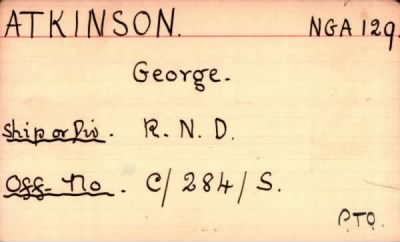 ATKINSON. NGA 129.
George.
Ship or Div. R. N. D.
Off- No. C/284/S.
P.T.O.